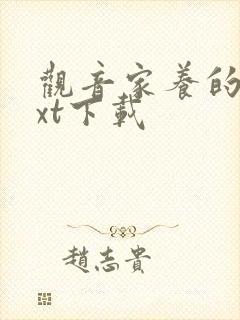 觀音家養的
xt下載
趙志貴